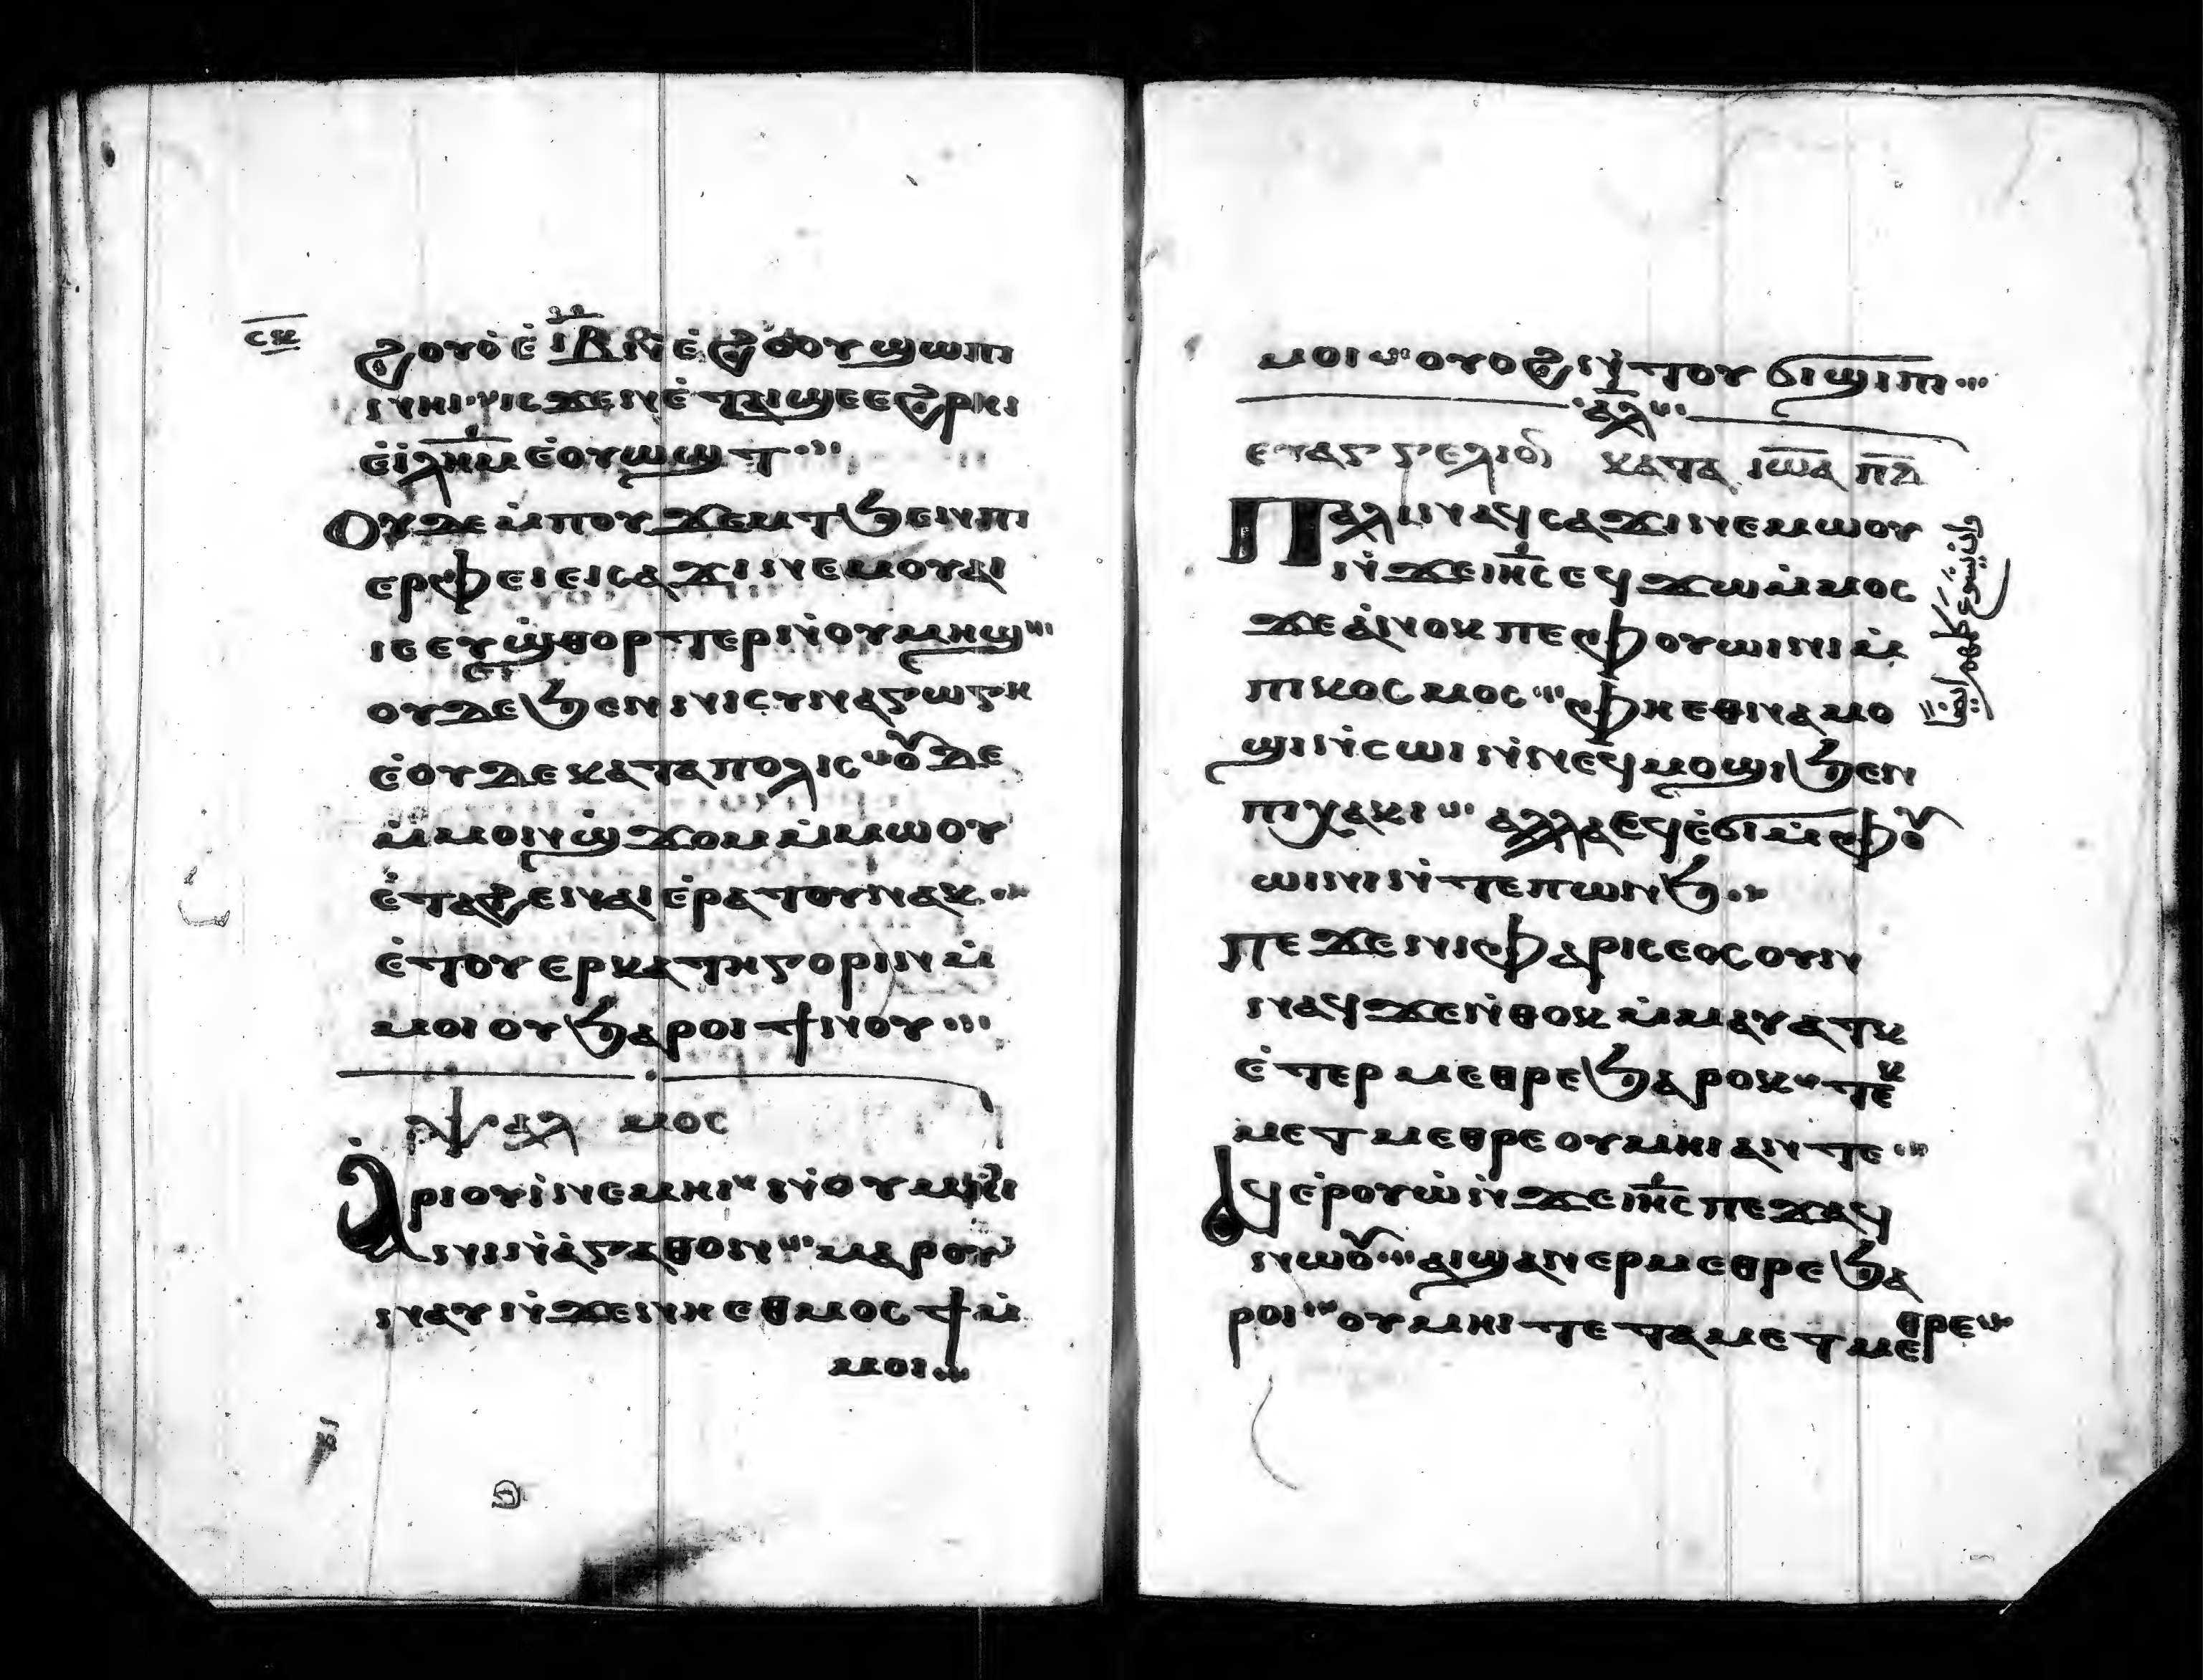 ⲥⲕ
ϩⲟⲩⲟ̀ ⲉ̀ ⲓ̅ⲃ̅ ⲛ̀ⲉ̀ϩⲟⲟⲩ ϣⲱⲡⲓ
ⲛⲏⲓ ⲓⲥϫⲉⲛ ⲉ̀ⲧⲁⲓϣⲉ ⲉϩⲣⲏⲓ
ⲉ̀ⲓ̀ⲗ̅ⲏ̅ⲙ̅ ⲉ̀ⲟⲩⲱϣⲧ
ⲟⲩⲇⲉ ⲙ̀ⲡⲟⲩϫⲉⲙⲧ ϧⲉⲛ ⲡⲓ
ⲉⲣⲫⲉⲓ ⲉⲓⲥⲁϫⲓ ⲛⲉⲙ ⲟⲩⲁⲓ
ⲓⲉ ⲉⲩϣ̀ⲑⲟⲣⲧⲉⲣ ⲛ̀ⲟⲩⲙⲏϣ
ⲟⲩⲇⲉ ϧⲉⲛ ⲛⲓⲥⲩⲛⲁⲅⲱⲅⲏ
ⲉ̀ⲟⲩⲇⲉ ⲕⲁⲧⲁ ⲡⲟⲗⲓⲥ ⲟⲩⲇⲉ
ⲙ̀ⲙⲟⲛ ϣ̀ϫⲟⲙ ⲙ̀ⲙⲱⲟⲩ
ⲉ̀ⲧⲁϩⲉ ⲛⲁⲓ ⲉ̀ⲣⲁⲧⲟⲩ ⲛⲁⲕ
ⲉ̀ⲧⲟⲩⲉⲣⲕⲁⲧⲏⲅⲟⲣⲓⲛ ⲙ̀
ⲙⲟⲓ ⲟⲩ ϧⲁⲣⲟⲓ ϯⲛⲟⲩ
ⲯⲁⲗⲙⲟⲥ
Ⲁⲣⲓⲟⲩⲓ̀ ⲛⲉⲙⲏⲓ ⲛ̀ⲟⲩⲙⲏⲓⲛⲓ
ⲛⲓⲛ̀ⲁ̀ⲅⲁⲑⲟⲛ ⲙⲁⲣⲟⲩ
ⲛⲁⲩ ⲛ̀ϫⲉ ⲛⲏⲉⲑⲙⲟⲥϯ ⲙ̀
ⲙⲟⲓ
ⲙⲟⲓ ⲟⲩⲟϩ ⲛ̀ⲧⲟⲩϭⲓϣⲓⲡⲓ
ⲁⲗ
ⲉⲩⲁⲅⲅⲉⲗⲓⲟⲛ ⲕⲁⲧⲁ ⲓⲱⲁ ⲡⲇ
Ⲡⲁⲗⲓⲛ ⲁϥⲥⲁϫⲓ ⲛⲉⲙⲱⲟⲩ
ⲛ̀ϫⲉ ⲓⲏⲥ ⲉϥϫⲱ ⲙ̀ⲙⲟⲥ
ϫⲉ ⲁ̀ⲛⲟⲕ ⲡⲉ ⲫⲟⲩⲱⲓⲛⲓ ⲙ̀
ⲡⲓⲕⲟⲥⲙⲟⲥ ⲫⲏⲉⲑⲛⲁⲙⲟ
ϣⲓ ⲛ̀ⲥⲱⲓ ⲛ̀ⲛⲉϥⲙⲟϣⲓ ϧⲉⲛ
ⲡⲓⲭⲁⲕⲓ ⲁⲗⲗⲁ ⲉϥⲉ̀ϭⲓ ⲙ̀ⲫⲟⲩ
ⲱⲓⲛⲓ ⲛ̀ⲧⲉ ⲡⲱⲛϧ
ⲡⲉϫⲉ ⲛⲓⲫⲁⲣⲓⲥⲉⲟⲥ ⲟⲩⲛ
ⲛⲁϥ ϫⲉ ⲛ̀ⲑⲟⲕ ⲙ̀ⲙⲁⲩⲁⲧⲕ
ⲉ̀ⲧⲉⲣⲙⲉⲑⲣⲉ ϧⲁⲣⲟⲕ ⲧⲉⲕ
ⲙⲉⲧⲙⲉⲑⲣⲉ ⲟⲩⲙⲏⲓ ⲁⲛ ⲧⲉ
Ⲁϥⲉ̀ⲣⲟⲩⲱ̀ ⲛ̀ϫⲉ ⲓⲏⲥ ⲡⲉϫⲁϥ
ⲛⲱⲟⲩ ⲁⲓϣⲁⲛⲉⲣⲙⲉⲑⲣⲉ ϧⲁ
ⲣⲟⲓ ⲟⲩⲙⲏⲓ ⲧⲉ ⲧⲁⲙⲉⲧⲙⲉⲑⲣⲉ